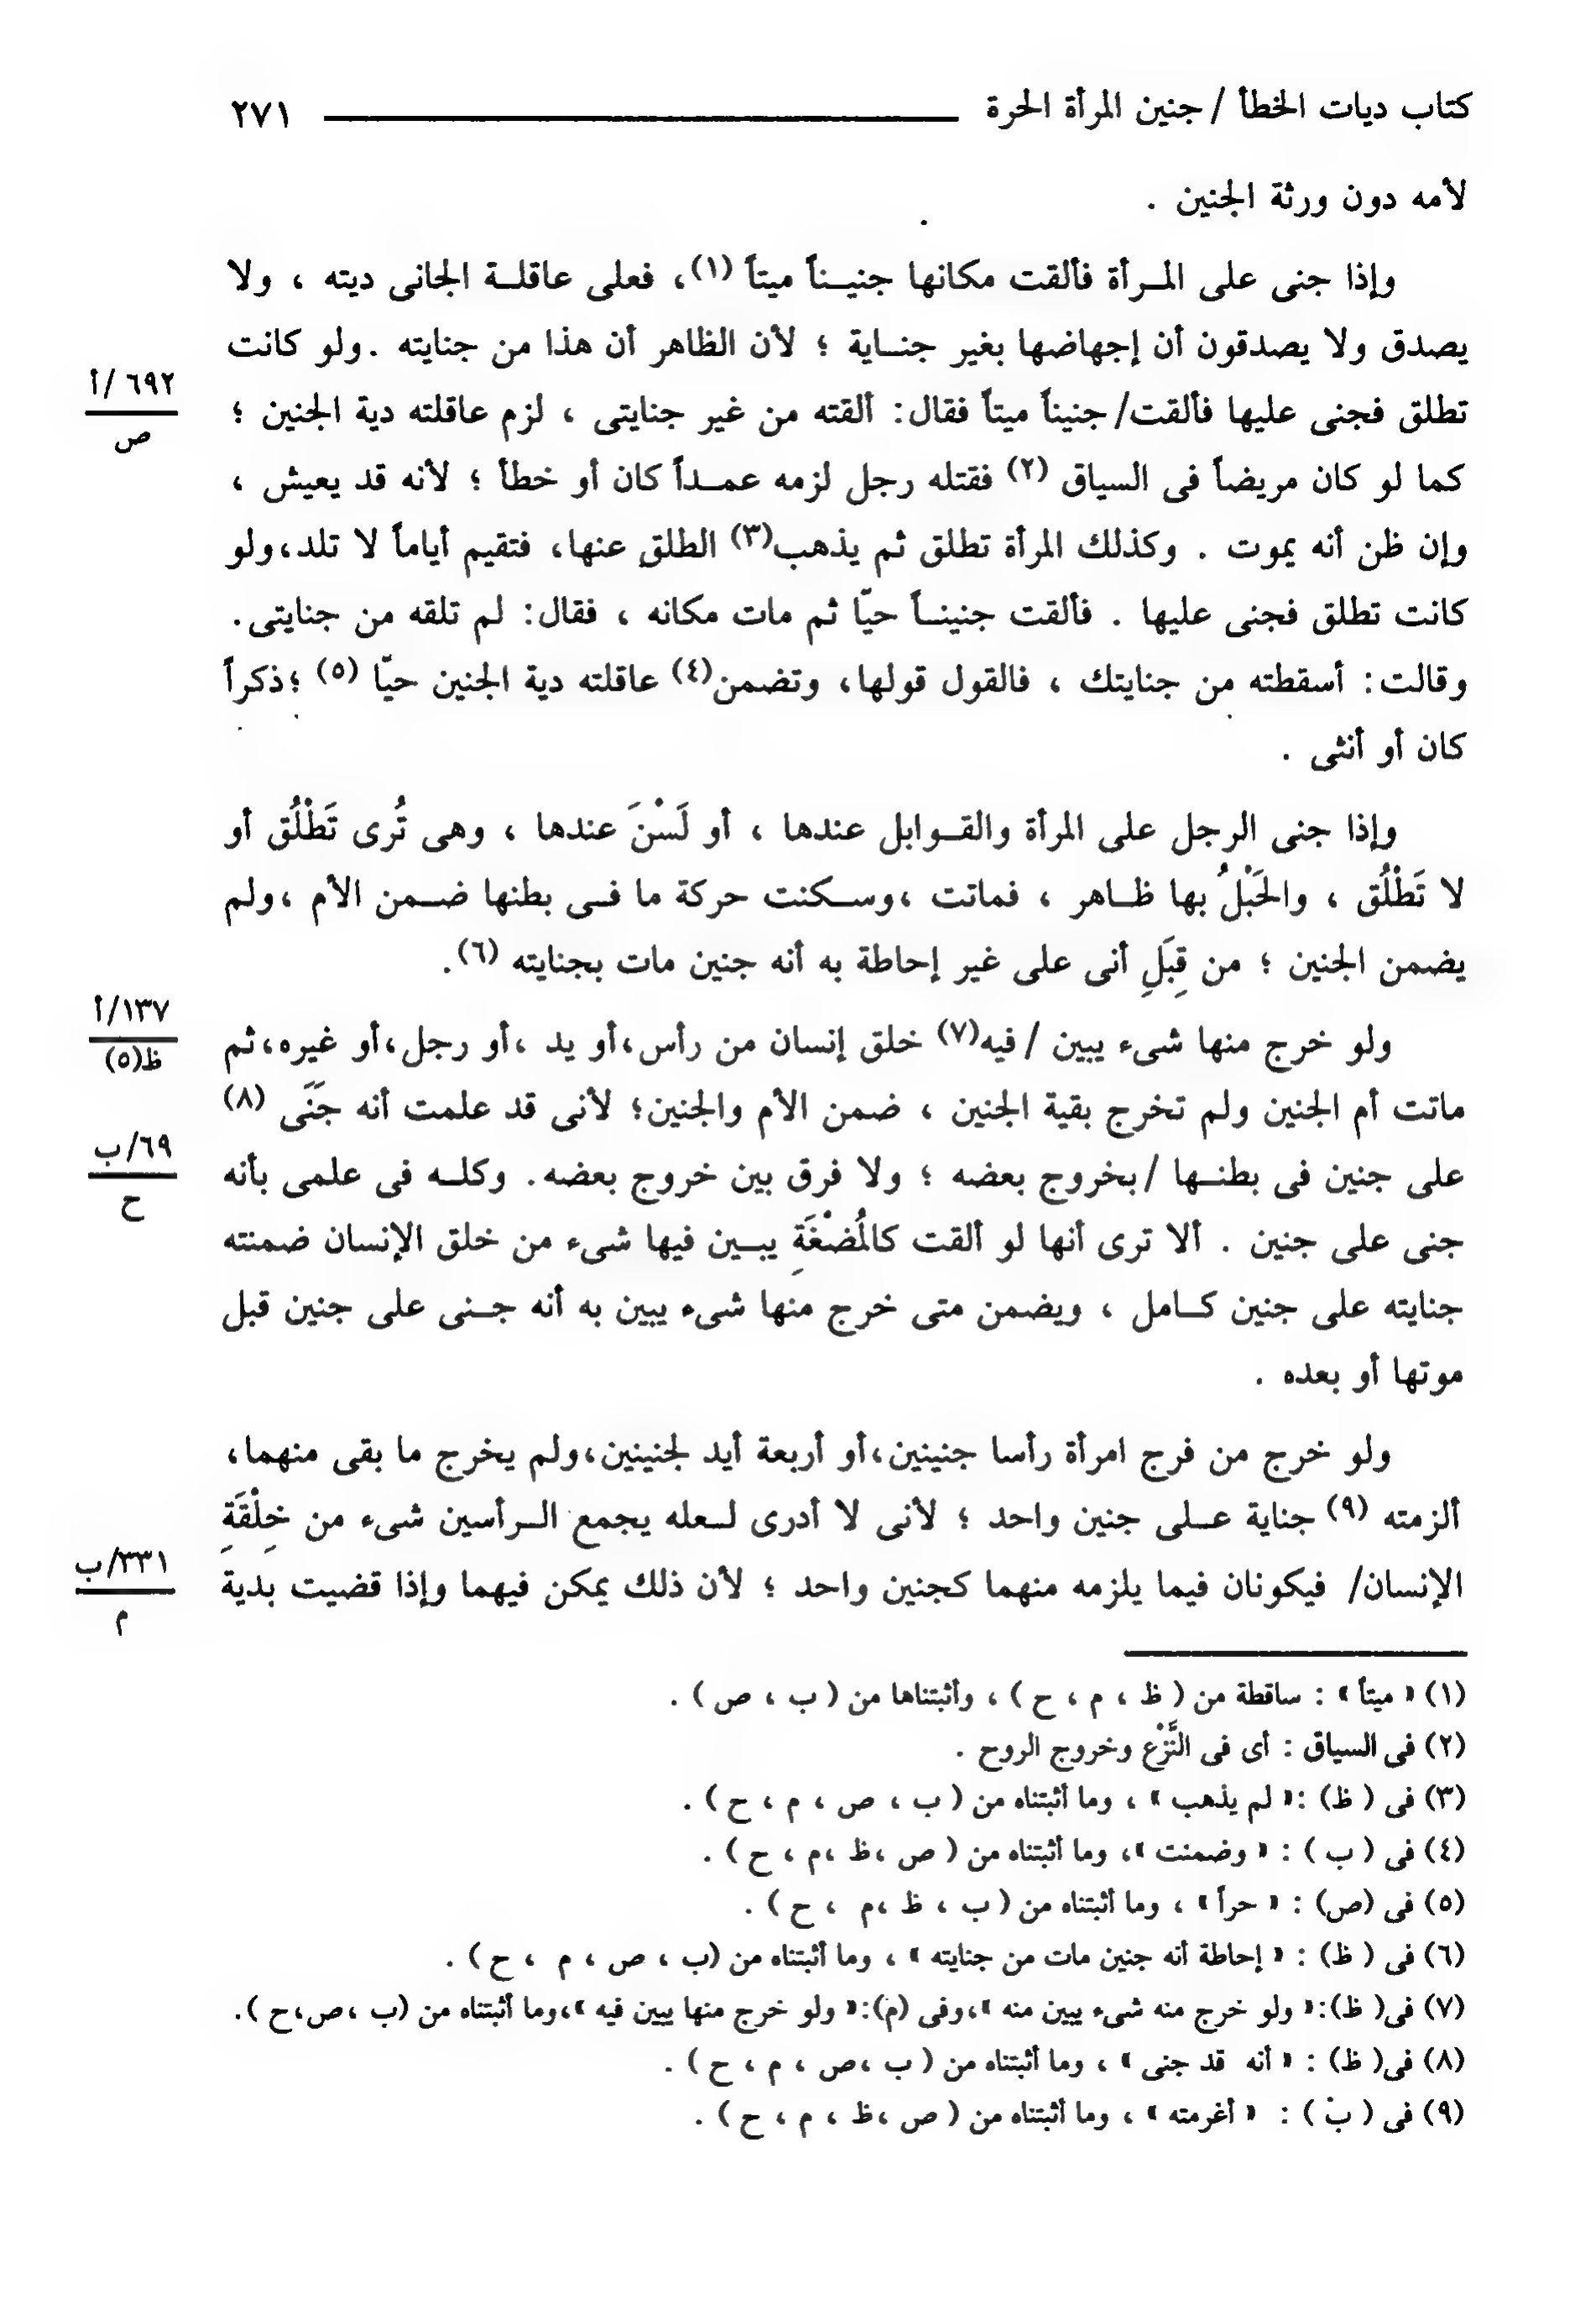 كتاب ديات الخطأ / جنين المرأة الحرة ٢٧١
لأمه دون ورثة الجنين .
وإذا جنى على المـرأة فألقت مكانها جنيـناً ميتاً (١)، فعلى عاقلـة الجانى ديته ، ولا
يصدق ولا يصدقون أن إجهاضها بغير جنـاية ؛ لأن الظاهر أن هذا من جنايته . ولو كانت
تطلق فجنى عليها فألقت/ جنيناً ميتاً فقال: ألقته من غير جنايتى ، لزم عاقلته دية الجنين ؛
٦٩٢ /أ
ص
كما لو كان مريضاً فى السياق (٢) فقتله رجل لزمه عمـداً كان أو خطأ ؛ لأنه قد يعيش ،
وإن ظن أنه يموت . وكذلك المرأة تطلق ثم يذهب(٣) الطلق عنها، فتقيم أياماً لا تلد،ولو
كانت تطلق فجنى عليها . فألقت جنينـاً حيّا ثم مات مكانه ، فقال: لم تلقه من جنايتى.
وقالت: أسقطته من جنايتك ، فالقول قولها، وتضمن(٤) عاقلته دية الجنين حيّا (٥) ؛ذكراً
كان أو أنثى .
وإذا جنى الرجل على المرأة والقـوابل عندها ، أو لَسْنَ عندها ، وهى تُرى تَطْلُق أو
لا تَطْلُق ، والحَبْلُ بها ظـاهر ، فماتت ،وسـكنت حركة ما فـى بطنها ضـمن الأم ،ولم
يضمن الجنين ؛ من قِبَلِ أنى على غير إحاطة به أنه جنين مات بجنايته (٦).
ولو خرج منها شىء يبين /فيه(٧) خلق إنسان من رأس،أو يد ،أو رجل،أو غيره،ثم
١٣٧/أ
ظ(٥)
ماتت أم الجنين ولم تخرج بقية الجنين ، ضمن الأم والجنين؛ لأنى قد علمت أنه جَنَى (٨)
على جنين فى بطنـها /بخروج بعضه ؛ ولا فرق بين خروج بعضه. وكلـه فى علمى بأنه
٦٩/ب
ح
جنى على جنين . ألا ترى أنها لو ألقت كالمُضْغَةِ يبـين فيها شىء من خلق الإنسان ضمنته
جنايته على جنين كـامل ، ويضمن متى خرج منها شىء يبين به أنه جـنى على جنين قبل
موتها أو بعده .
ولو خرج من فرج امرأة رأسا جنينين،أو أربعة أيد لجنينين،ولم يخرج ما بقى منهما،
ألزمته (٩) جناية عـلى جنين واحد ؛ لأنى لا أدرى لـعله يجمع الـرأسين شىء من خِلْقَةِ
الإنسان/ فيكونان فيما يلزمه منهما كجنين واحد ؛ لأن ذلك يمكن فيهما وإذا قضيت بدية
٣٣١/ب
م
(١) « ميتاً » : ساقطة من ( ظ ، م ، ح ) ، وأثبتناها من ( ب ، ص ) .
(٢) فى السياق : أى فى النَّزْع وخروج الروح .
(٣) فى ( ظ) :« لم يذهب » ، وما أثبتناه من ( ب ، ص ، م ، ح ) .
(٤) فى ( ب ) : « وضمنت »، وما أثبتناه من ( ص ،ظ ،م ، ح ) .
(٥) فى (ص) : « حراً » ، وما أثبتناه من ( ب ، ظ ،م ، ح ) .
(٦) فى ( ظ) : « إحاطة أنه جنين مات من جنايته » ، وما أثبتناه من (ب ، ص ، م ، ح ) .
(٧) فى( ظ):« ولو خرج منه شىء يبين منه »،وفى (م):« ولو خرج منها يبين فيه »،وما أثبتناه من (ب ،ص،ح ).
(٨) فى( ظ) : « أنه قد جنى » ، وما أثبتناه من ( ب ،ص ، م ، ح ) .
(٩) فى ( ب ) : « أغرمته » ، وما أثبتناه من ( ص ،ظ ، م ، ح ) .